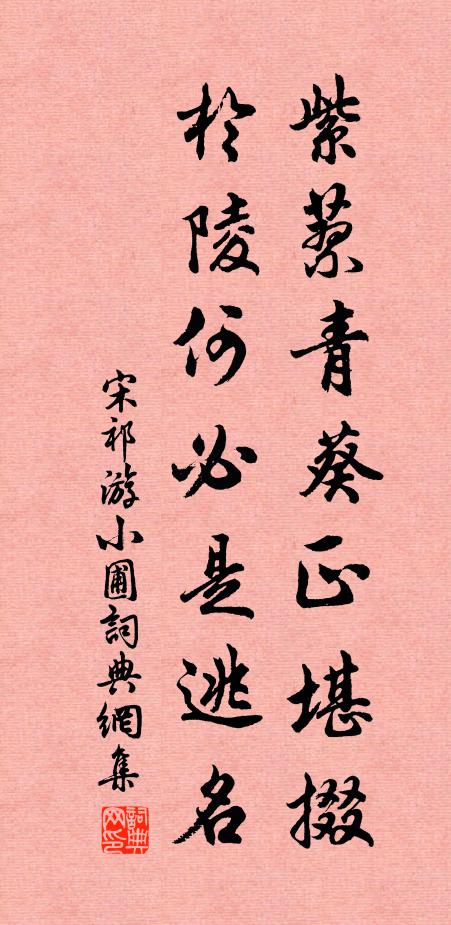 紫蔡青葵正堪掇
於陵何必是逃名
宋祁游小圃詞典網集
詞典网印